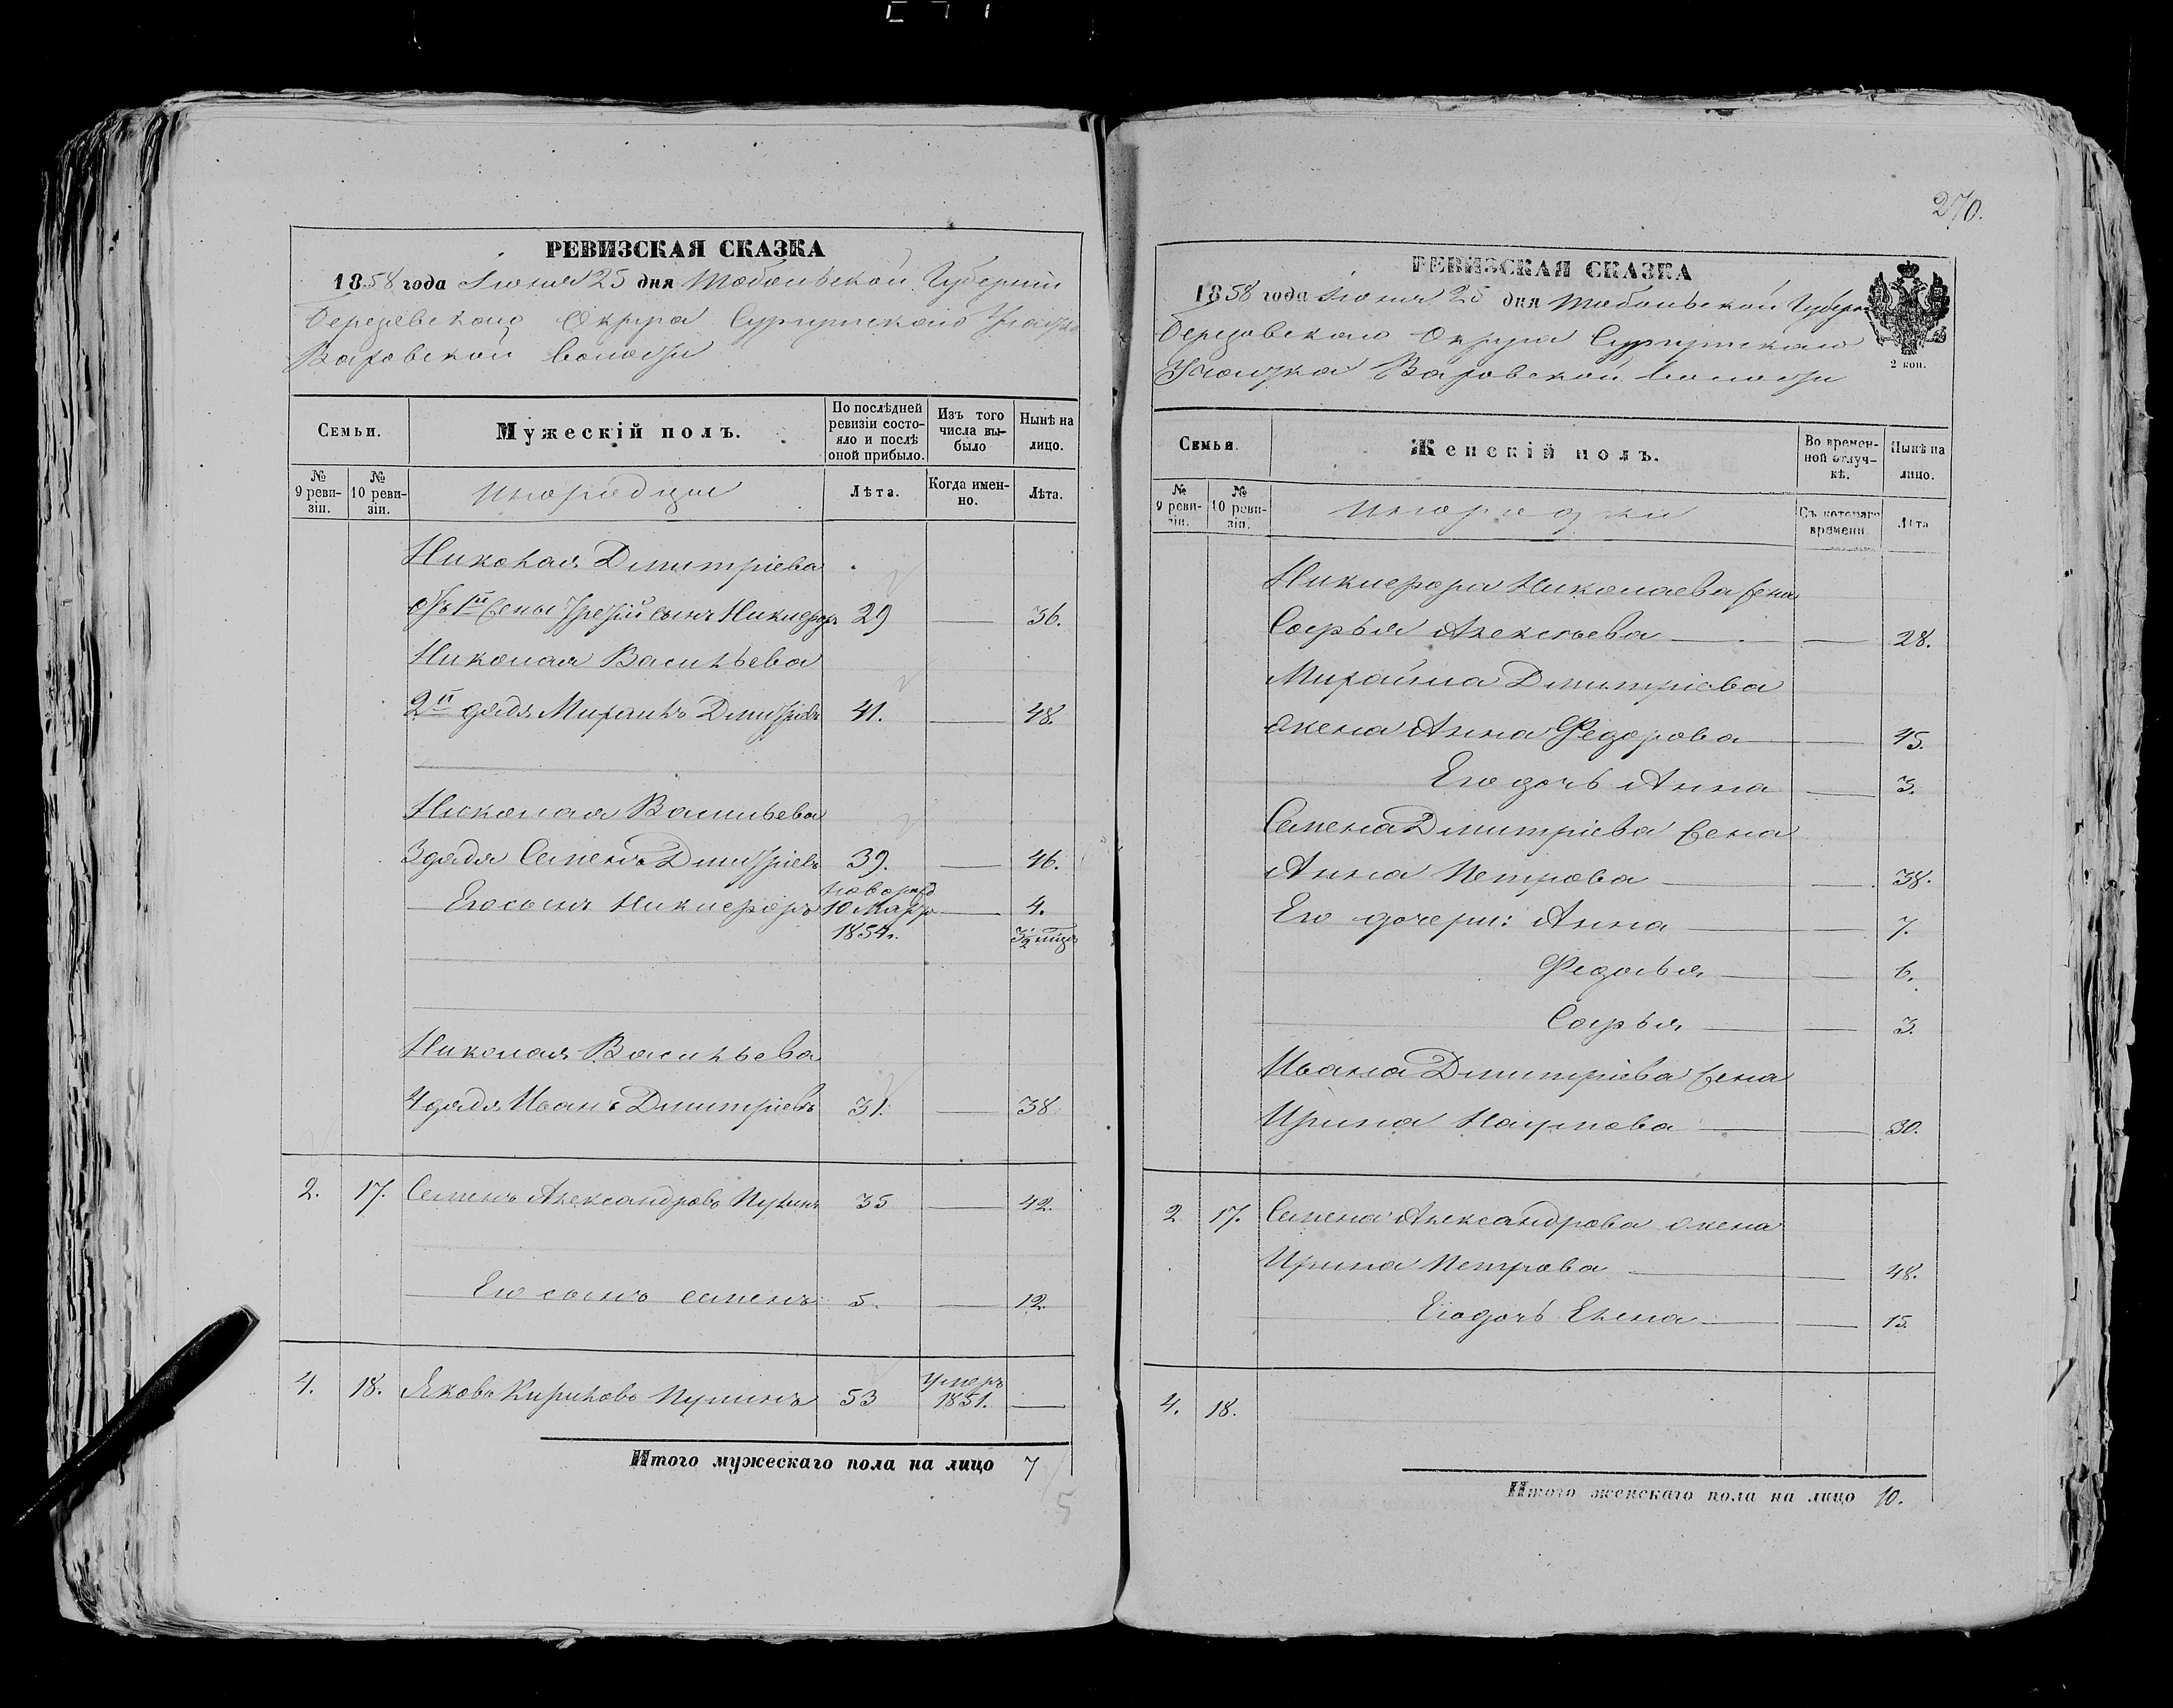 270.
РЕВИЗСКАЯ СКАЗКА
1858 года Июня 25 дня Тобольской Губерніи
Березовскаго Округа Сургутскаго
Ваховской волости
Семьи.
Мужескій полъ.
По послѣдней ревизіи состояло и послѣ оной прибыло.
Изъ того числа выбыло
Нынѣ на лицо.
№ 9 ревизіи.
№ 10 ревизіи.
Инородцы
Лѣта.
Когда именно.
Лѣта.
Николая Дмитріева
1й жены третій сынъ Никифоръ 29 — 36.
Николая Васильева
2й дядя Михаилъ Дмитріевъ 41. — 48.
Николая Васильева
3 дядя Семенъ Дмитріевъ 39. — 46.
Его сынъ Никифоръ новорожд 10 Март 1854г. — 4.
Николая Васильева
4 дядя Иванъ Дмитріевъ 31. — 38.
2. 17. Семенъ Александровъ 35 — 42.
Его сынъ Семенъ 5. — 12.
4. 18. Яковъ Кириловъ 53 умеръ 1851. —
Итого мужескаго пола на лицо 7
5
РЕВИЗСКАЯ СКАЗКА
1858 года Июня 25 дня Тобольской Губерн
Березовскаго Округа Сургутскаго
Ваховской волости
2 коп.
Семьи.
Женскій полъ.
Во временной отлучкѣ.
Нынѣ на лицо.
№ 9 ревизіи.
№ 10 ревизіи.
Инородки
Съ котораго времени
Лѣта
Никифора Николаева жена
Софья Алексѣева — — 28.
Михайла Дмитріева
жена Анна Федорова — — 45.
Его дочь Анна — 3.
Семена Дмитріева жена
Анна Петрова — — 38.
Его дочери: Анна — — 7.
Федосья — — 6.
Софья — — 3.
Ивана Дмитріева жена
Ирина Наумова — — 30.
2 17. Семена Александрова жена
Ирина Петрова — — 48.
Его дочь Елена — — 15.
4. 18.
Итого женскаго пола на лицо 10.